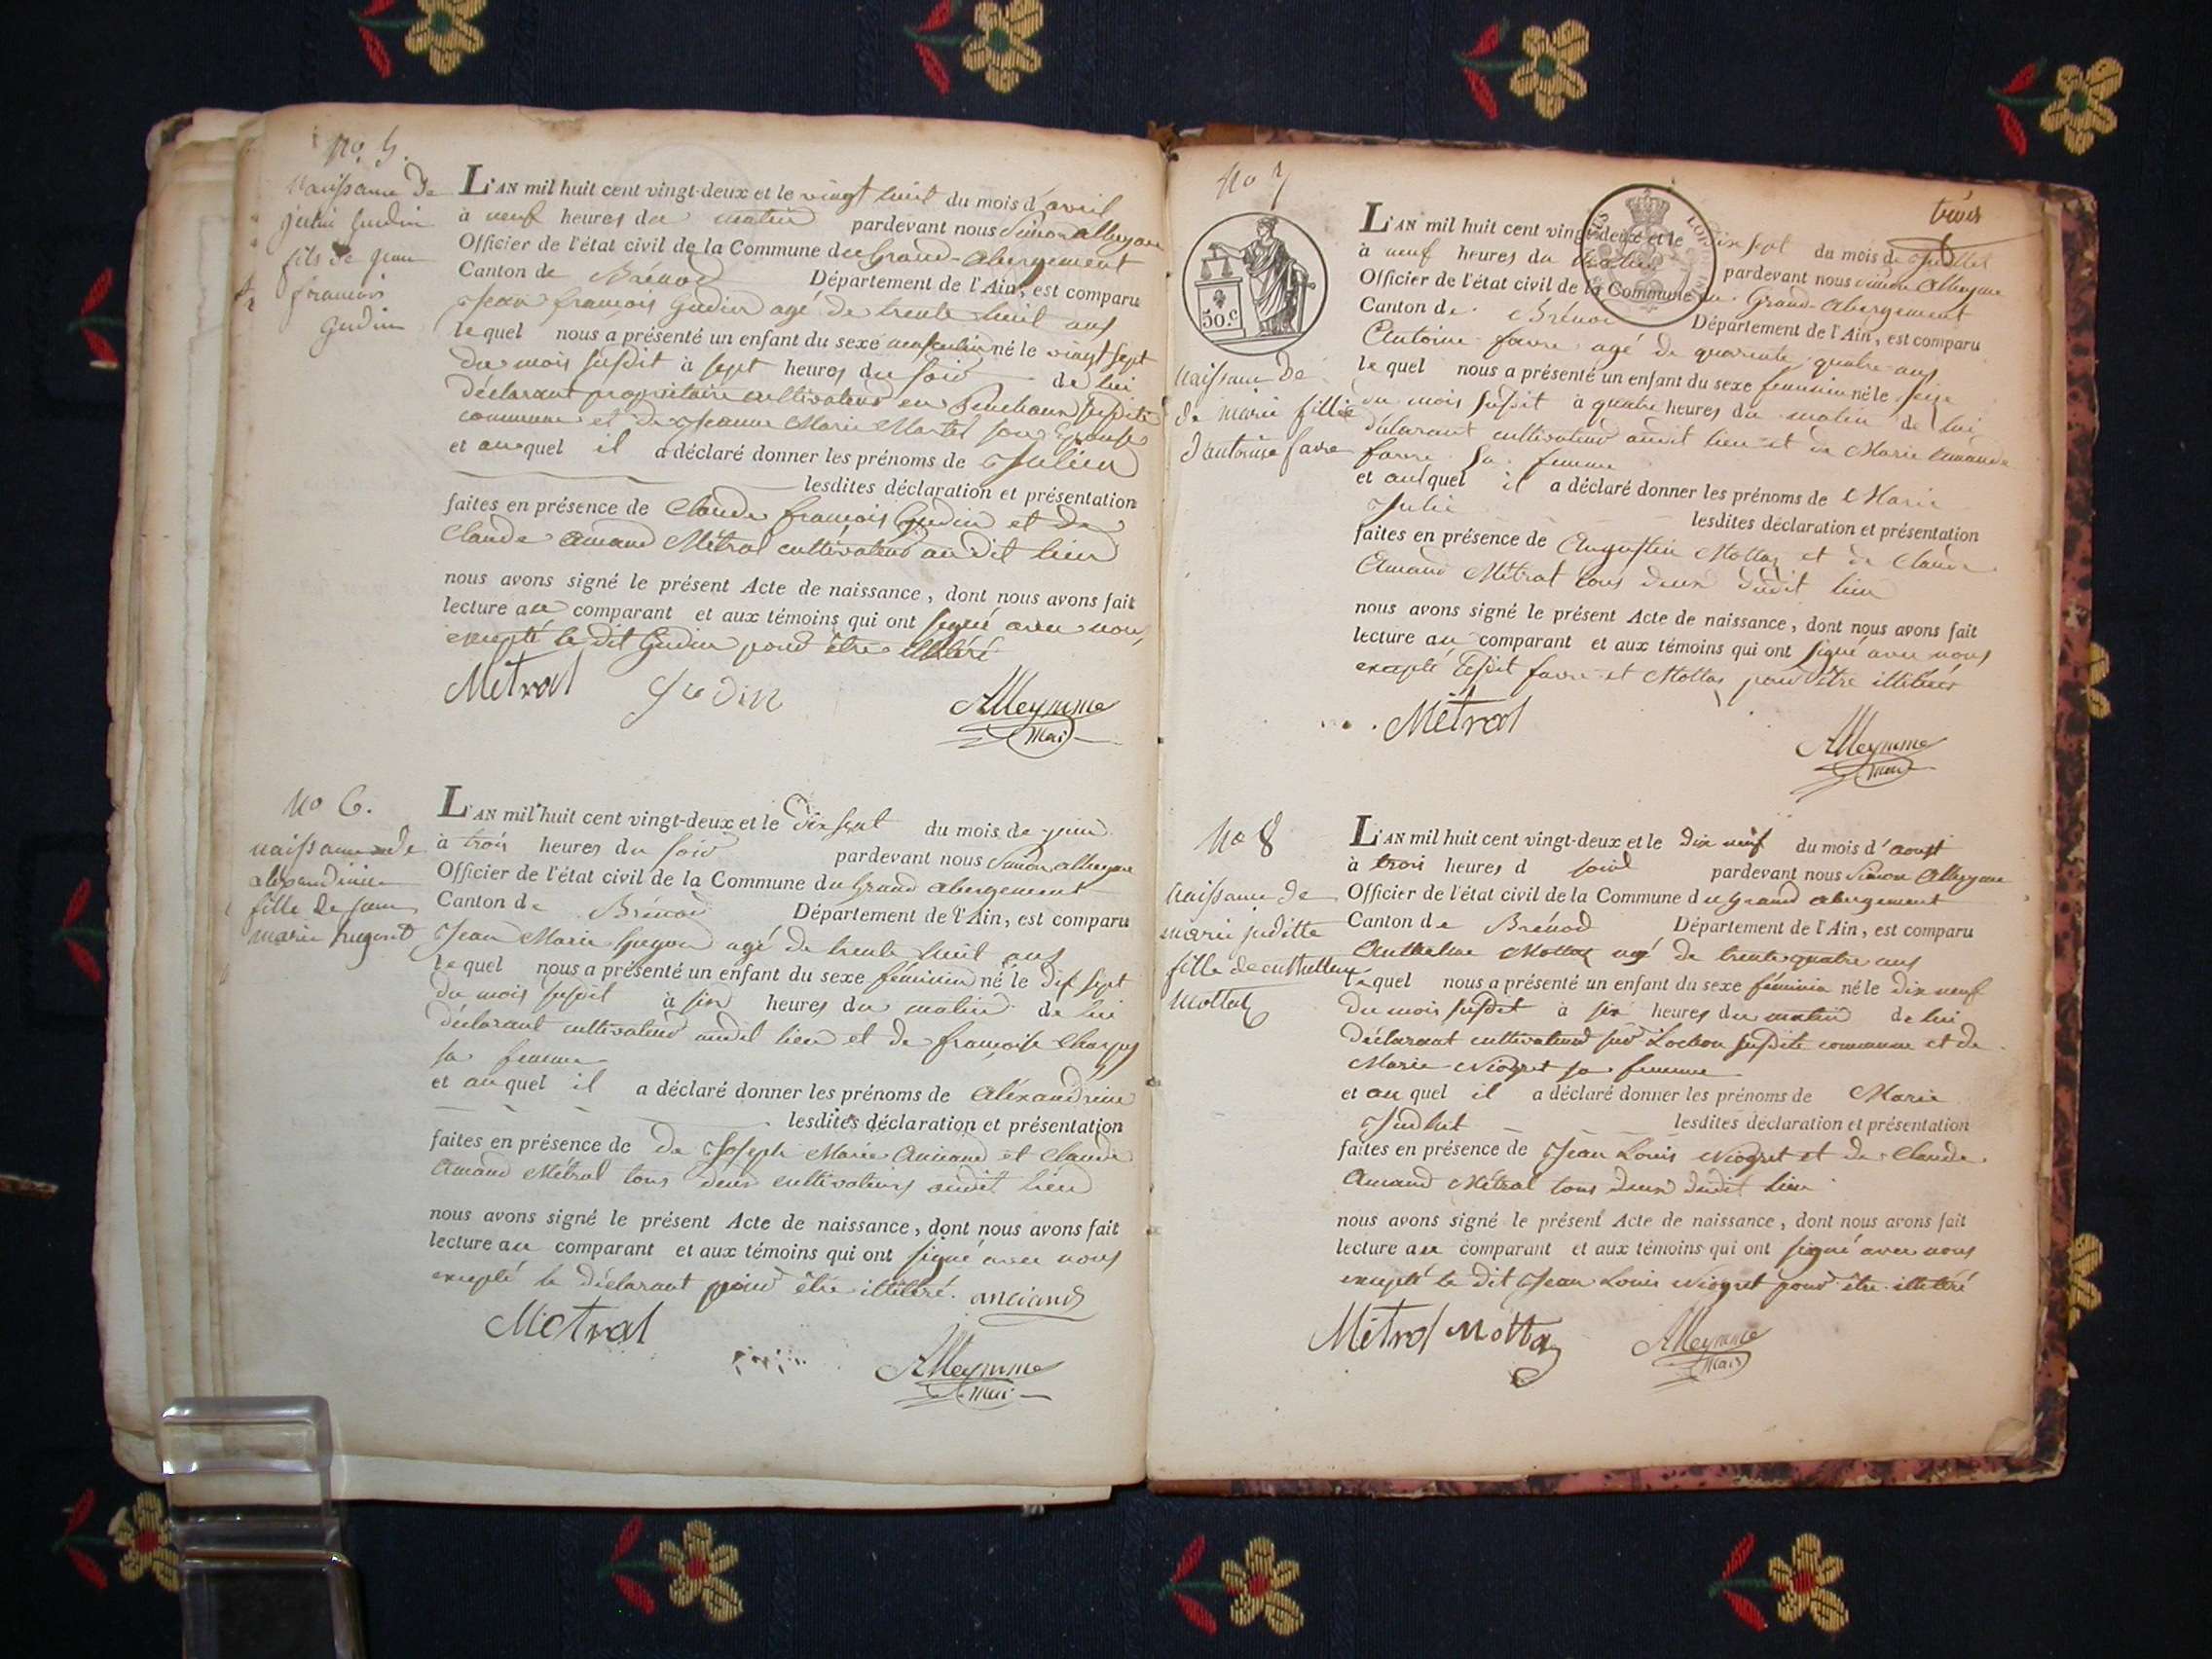 No. 5.
Naissance de
julien Gudin
fils de jean
francois
Gudin
L'AN mil huit cent vingt-deux et le vingt huit du mois d'avril
à neuf heures du matin pardevant nous Simon Alleyme
Officier de l'état civil de la Commune du Grand-abergement
Canton de Brénod Département de l'Ain, est comparu
Jean françois Gudin agé de trente huit ans
lequel nous a présenté un enfant du sexe masculin né le vingt sept
du mois susdit à sept heures du soir de lui
déclarant propriétaire cultivateur en susdite
commune et de Jeanne Marie Martel son Epouse
et auquel il a déclaré donner les prénoms de Julien
lesdites déclaration et présentation
faites en présence de Claude françois Gudin et de
Claude Amand Métral cultivateurs audit lieu
nous avons signé le présent Acte de naissance, dont nous avons fait
lecture au comparant et aux témoins qui ont signé avec nous
excepté le dit Gudin pour être illitéré
Métral Gudin Alleymme
Mair
No 6.
naissance de
alexandrine
fille de jean
marie hugont
L'AN mil huit cent vingt-deux et le dix sept du mois de juin
à trois heures du soir pardevant nous Simon alleyme
Officier de l'état civil de la Commune du Grand abergement
Canton de Brénod Département de l'Ain, est comparu
Jean Marie hugon agé de trente huit ans
lequel nous a présenté un enfant du sexe féminin né le dix sept
du mois susdit à six heures du matin de lui
déclarant cultivateur audit lieu et de françoise Charpy
sa femme
et auquel il a déclaré donner les prénoms de Aléxandrine
lesdites déclaration et présentation
faites en présence de de Joseph Marie Anciand et Claude
Amand Métral tous deux cultivateurs audit lieu
nous avons signé le présent Acte de naissance, dont nous avons fait
lecture au comparant et aux témoins qui ont signé avec nous
excepté le déclarant pour être illitéré. anciand
Métral
Alleymme
Mair
No 7
trois
50.c
naissance de
de marie fille
d'antoine favre
L'AN mil huit cent vingt-deux et le dix sept du mois de Juillet
à neuf heures du matin pardevant nous Simon Alleyme
Officier de l'état civil de la Commune du Grand-abergement
Canton de Brénod Département de l'Ain, est comparu
Antoine favre agé de quarente quatre ans
lequel nous a présenté un enfant du sexe féminin né le seize
du mois susdit à quatre heures du matin de lui
déclarant cultivateur audit lieu et de Marie Amande
favre sa femme
et auquel il a déclaré donner les prénoms de Marie
Julie lesdites déclaration et présentation
faites en présence de Augustin Mottaz et de Claude
Amand Métral tous deux dudit lieu
nous avons signé le présent Acte de naissance, dont nous avons fait
lecture au comparant et aux témoins qui ont signé avec nous
excepté lesdit favre et Mottaz pour être illitérés
Métral
Alleymme
Mair
No 8
Naissance de
marie juditte
fille de anthelme
Mottaz
L'AN mil huit cent vingt-deux et le dix neuf du mois d'aoust
à trois heures d soir pardevant nous Simon Alleyme
Officier de l'état civil de la Commune du Grand abergement
Canton de Brénod Département de l'Ain, est comparu
Anthelme Mottaz agé de trente quatre ans
lequel nous a présenté un enfant du sexe féminin né le dix neuf
du mois susdit à six heures du matin de lui
déclarant cultivateur sur Lochou susdite commune et de
Marie Niogret sa femme
et auquel il a déclaré donner les prénoms de Marie
Judhit lesdites déclaration et présentation
faites en présence de Jean Louis Niogret et de Claude
Amand Métral tous deux dudit lieu
nous avons signé le présent Acte de naissance, dont nous avons fait
lecture au comparant et aux témoins qui ont signé avec nous
excepté le dit Jean Louis Niogret pour être illitéré
Métral Mottaz Alleymme
Mair